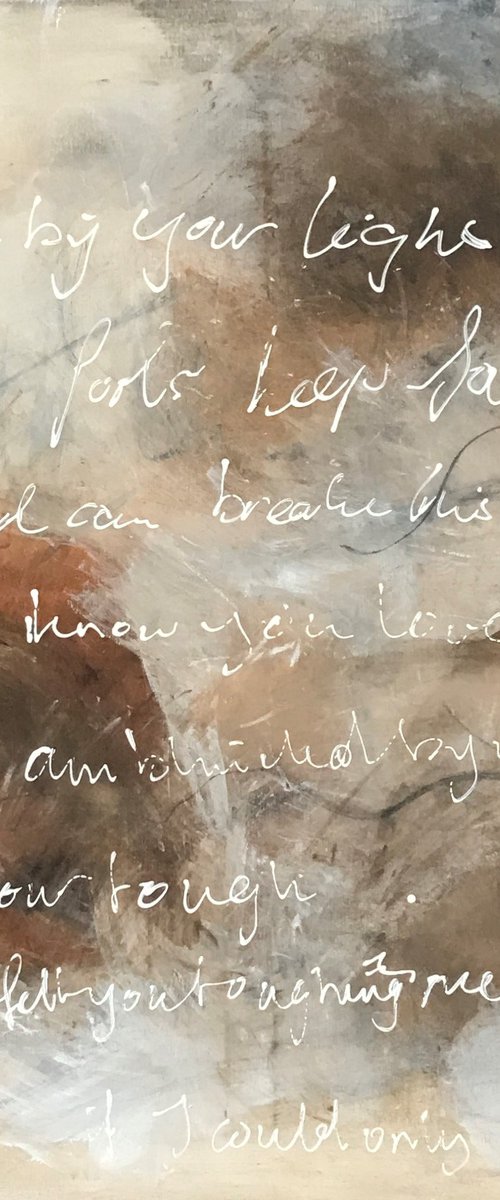 by your light
fools keep fa
d can breathe this
know you love
am blinded by
our tough
felt you toughing me
if I could only